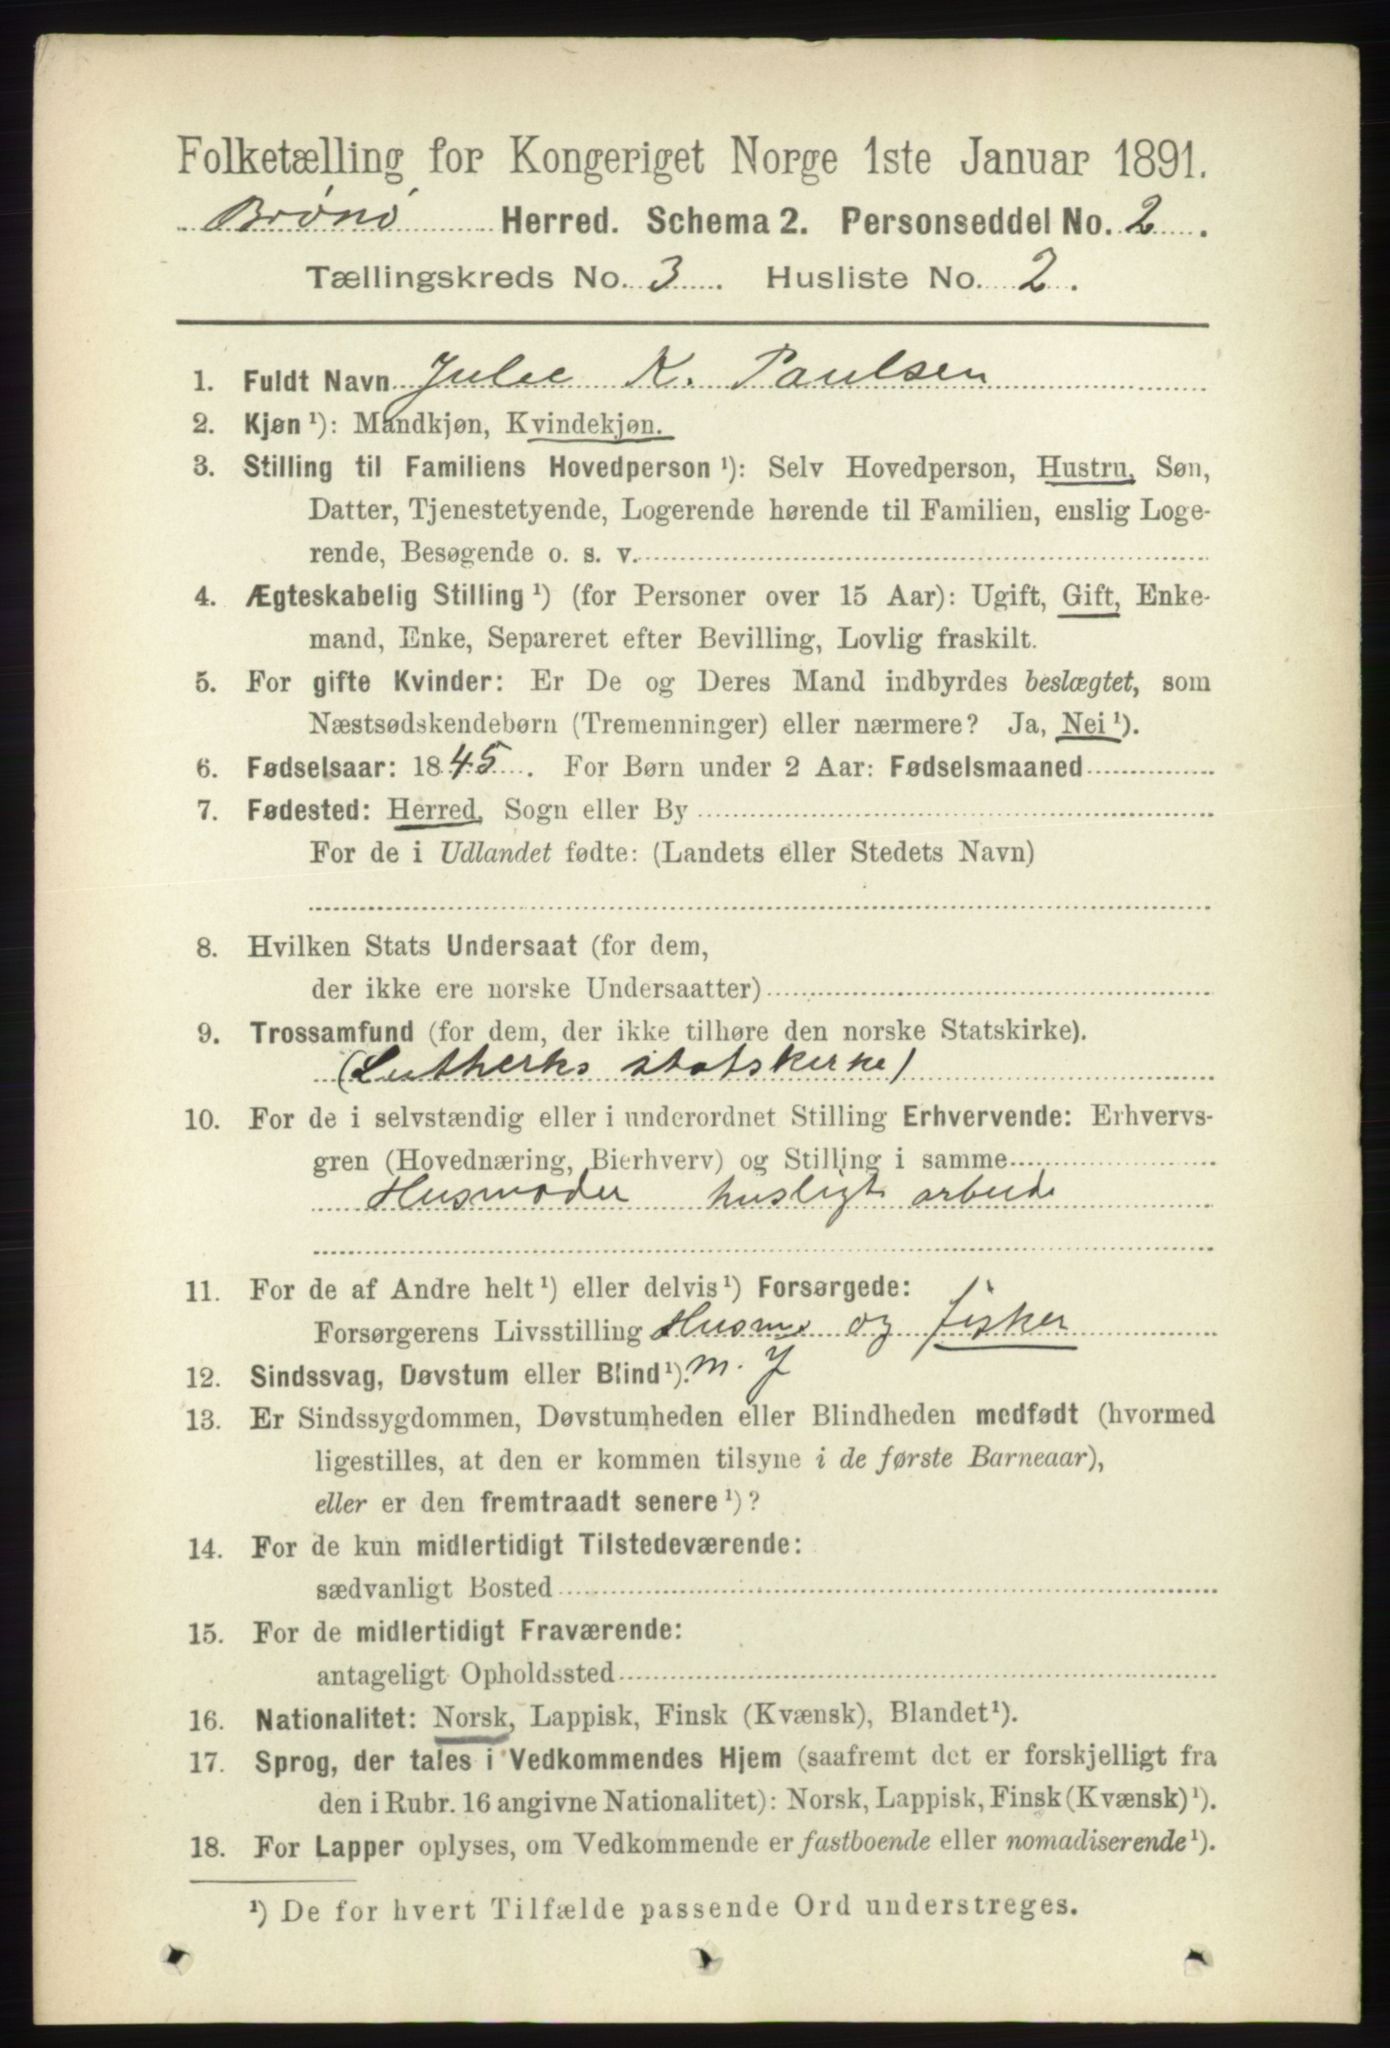 Folketælling for Kongeriget Norge 1ste Januar 1891.
Brønø Herred. Schema 2. Personseddel No. 2.
Tællingskreds No. 3 Husliste No. 2.
1. Fuldt Navn Julie K. Paulsen
2. Kjøn ¹): Mandkjøn, Kvindekjøn.
3. Stilling til Familiens Hovedperson ¹): Selv Hovedperson, Hustru, Søn,
Datter, Tjenestetyende, Logerende hørende til Familien, enslig Loge-
rende, Besøgende o. s. v.
4. Ægteskabelig Stilling ¹) (for Personer over 15 Aar): Ugift, Gift, Enke-
mand, Enke, Separeret efter Bevilling, Lovlig fraskilt.
5. For gifte Kvinder: Er De og Deres Mand indbyrdes beslægtet, som
Næstsødskendebørn (Tremenninger) eller nærmere? Ja, Nei ¹).
6. Fødselsaar: 1845. For Børn under 2 Aar: Fødselsmaaned
7. Fødested: Herred, Sogn eller By
For de i Udlandet fødte: (Landets eller Stedets Navn)
8. Hvilken Stats Undersaat (for dem,
der ikke ere norske Undersaatter)
9. Trossamfund (for dem, der ikke tilhøre den norske Statskirke).
(Lutherks statskirke)
10. For de i selvstændig eller i underordnet Stilling Erhvervende: Erhvervs-
gren (Hovednæring, Bierhverv) og Stilling i samme
Husmoder husligt arbeide
11. For de af Andre helt ¹) eller delvis ¹) Forsørgede:
Forsørgerens Livsstilling Husm. og fisker
12. Sindssvag, Døvstum eller Blind ¹). m. J
13. Er Sindssygdommen, Døvstumheden eller Blindheden medfødt (hvormed
ligestilles, at den er kommen tilsyne i de første Barneaar),
eller er den fremtraadt senere ¹)?
14. For de kun midlertidigt Tilstedeværende:
sædvanligt Bosted
15. For de midlertidigt Fraværende:
antageligt Opholdssted
16. Nationalitet: Norsk, Lappisk, Finsk (Kvænsk), Blandet ¹).
17. Sprog, der tales i Vedkommendes Hjem (saafremt det er forskjelligt fra
den i Rubr. 16 angivne Nationalitet): Norsk, Lappisk, Finsk (Kvænsk) ¹).
18. For Lapper oplyses, om Vedkommende er fastboende eller nomadiserende ¹).
¹) De for hvert Tilfælde passende Ord understreges.